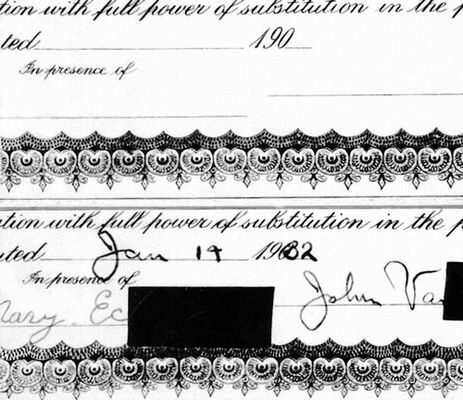 tion with full power of substitution in the p
ted 190
In presence of
ution with full power of substitution in the p
uted Jan 14 1932
In presence of
Mary Ec John Va